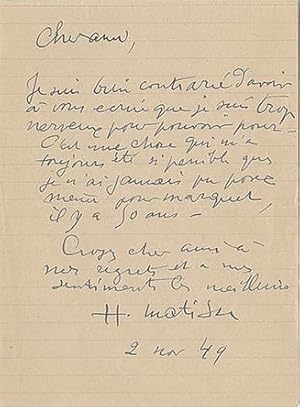 Cher ami,
Je suis bien contrarié d'avoir
à vous écrire que je suis trop
nerveux pour pouvoir poser –
C'est une chose qui m'a
toujours été si pénible que
je n'ai jamais pu poser
même pour Marquet,
il y a 50 ans –
Croyez cher ami à
mes regrets et à mes
sentiments les meilleurs
H. Matisse
2 nov 49